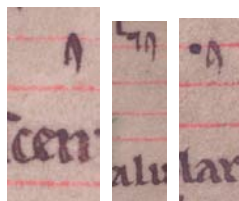 cen
alu
lar